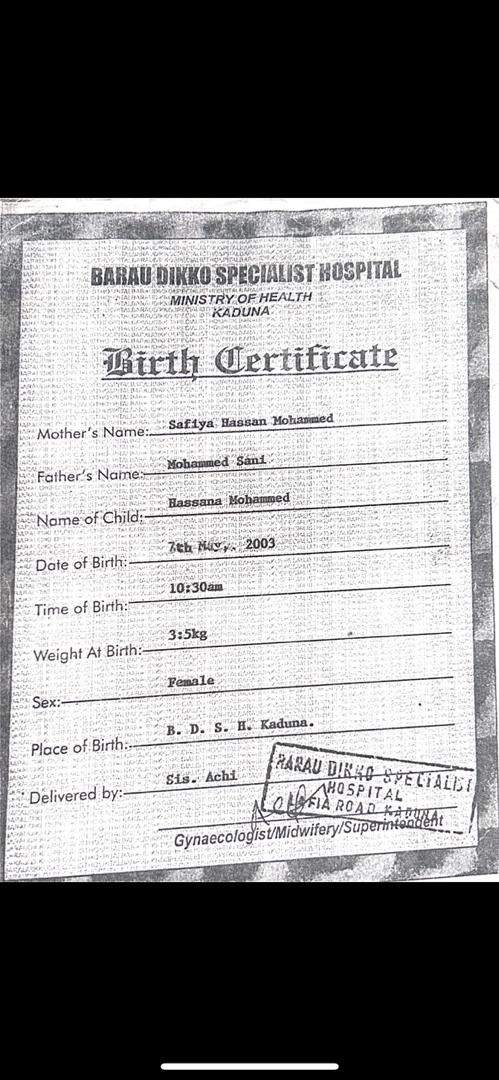 BARAU DIKKO SPECIALIST HOSPITAL
MINISTRY OF HEALTH
KADUNA
Birth Certificate
Mother's Name: Safiya Hassan Mohammed
Father's Name: Mohammed Sani
Name of Child: Hassana Mohammed
Date of Birth: 7th May,. 2003
Time of Birth: 10:30am
Weight At Birth: 3:5kg
Sex: Female
Place of Birth: B. D. S. H. Kaduna.
Delivered by: Sis. Achi
BARAU DIKKO SPECIALIST
HOSPITAL
LAFIA ROAD KADUNA
Gynaecologist/Midwifery/Superintendent